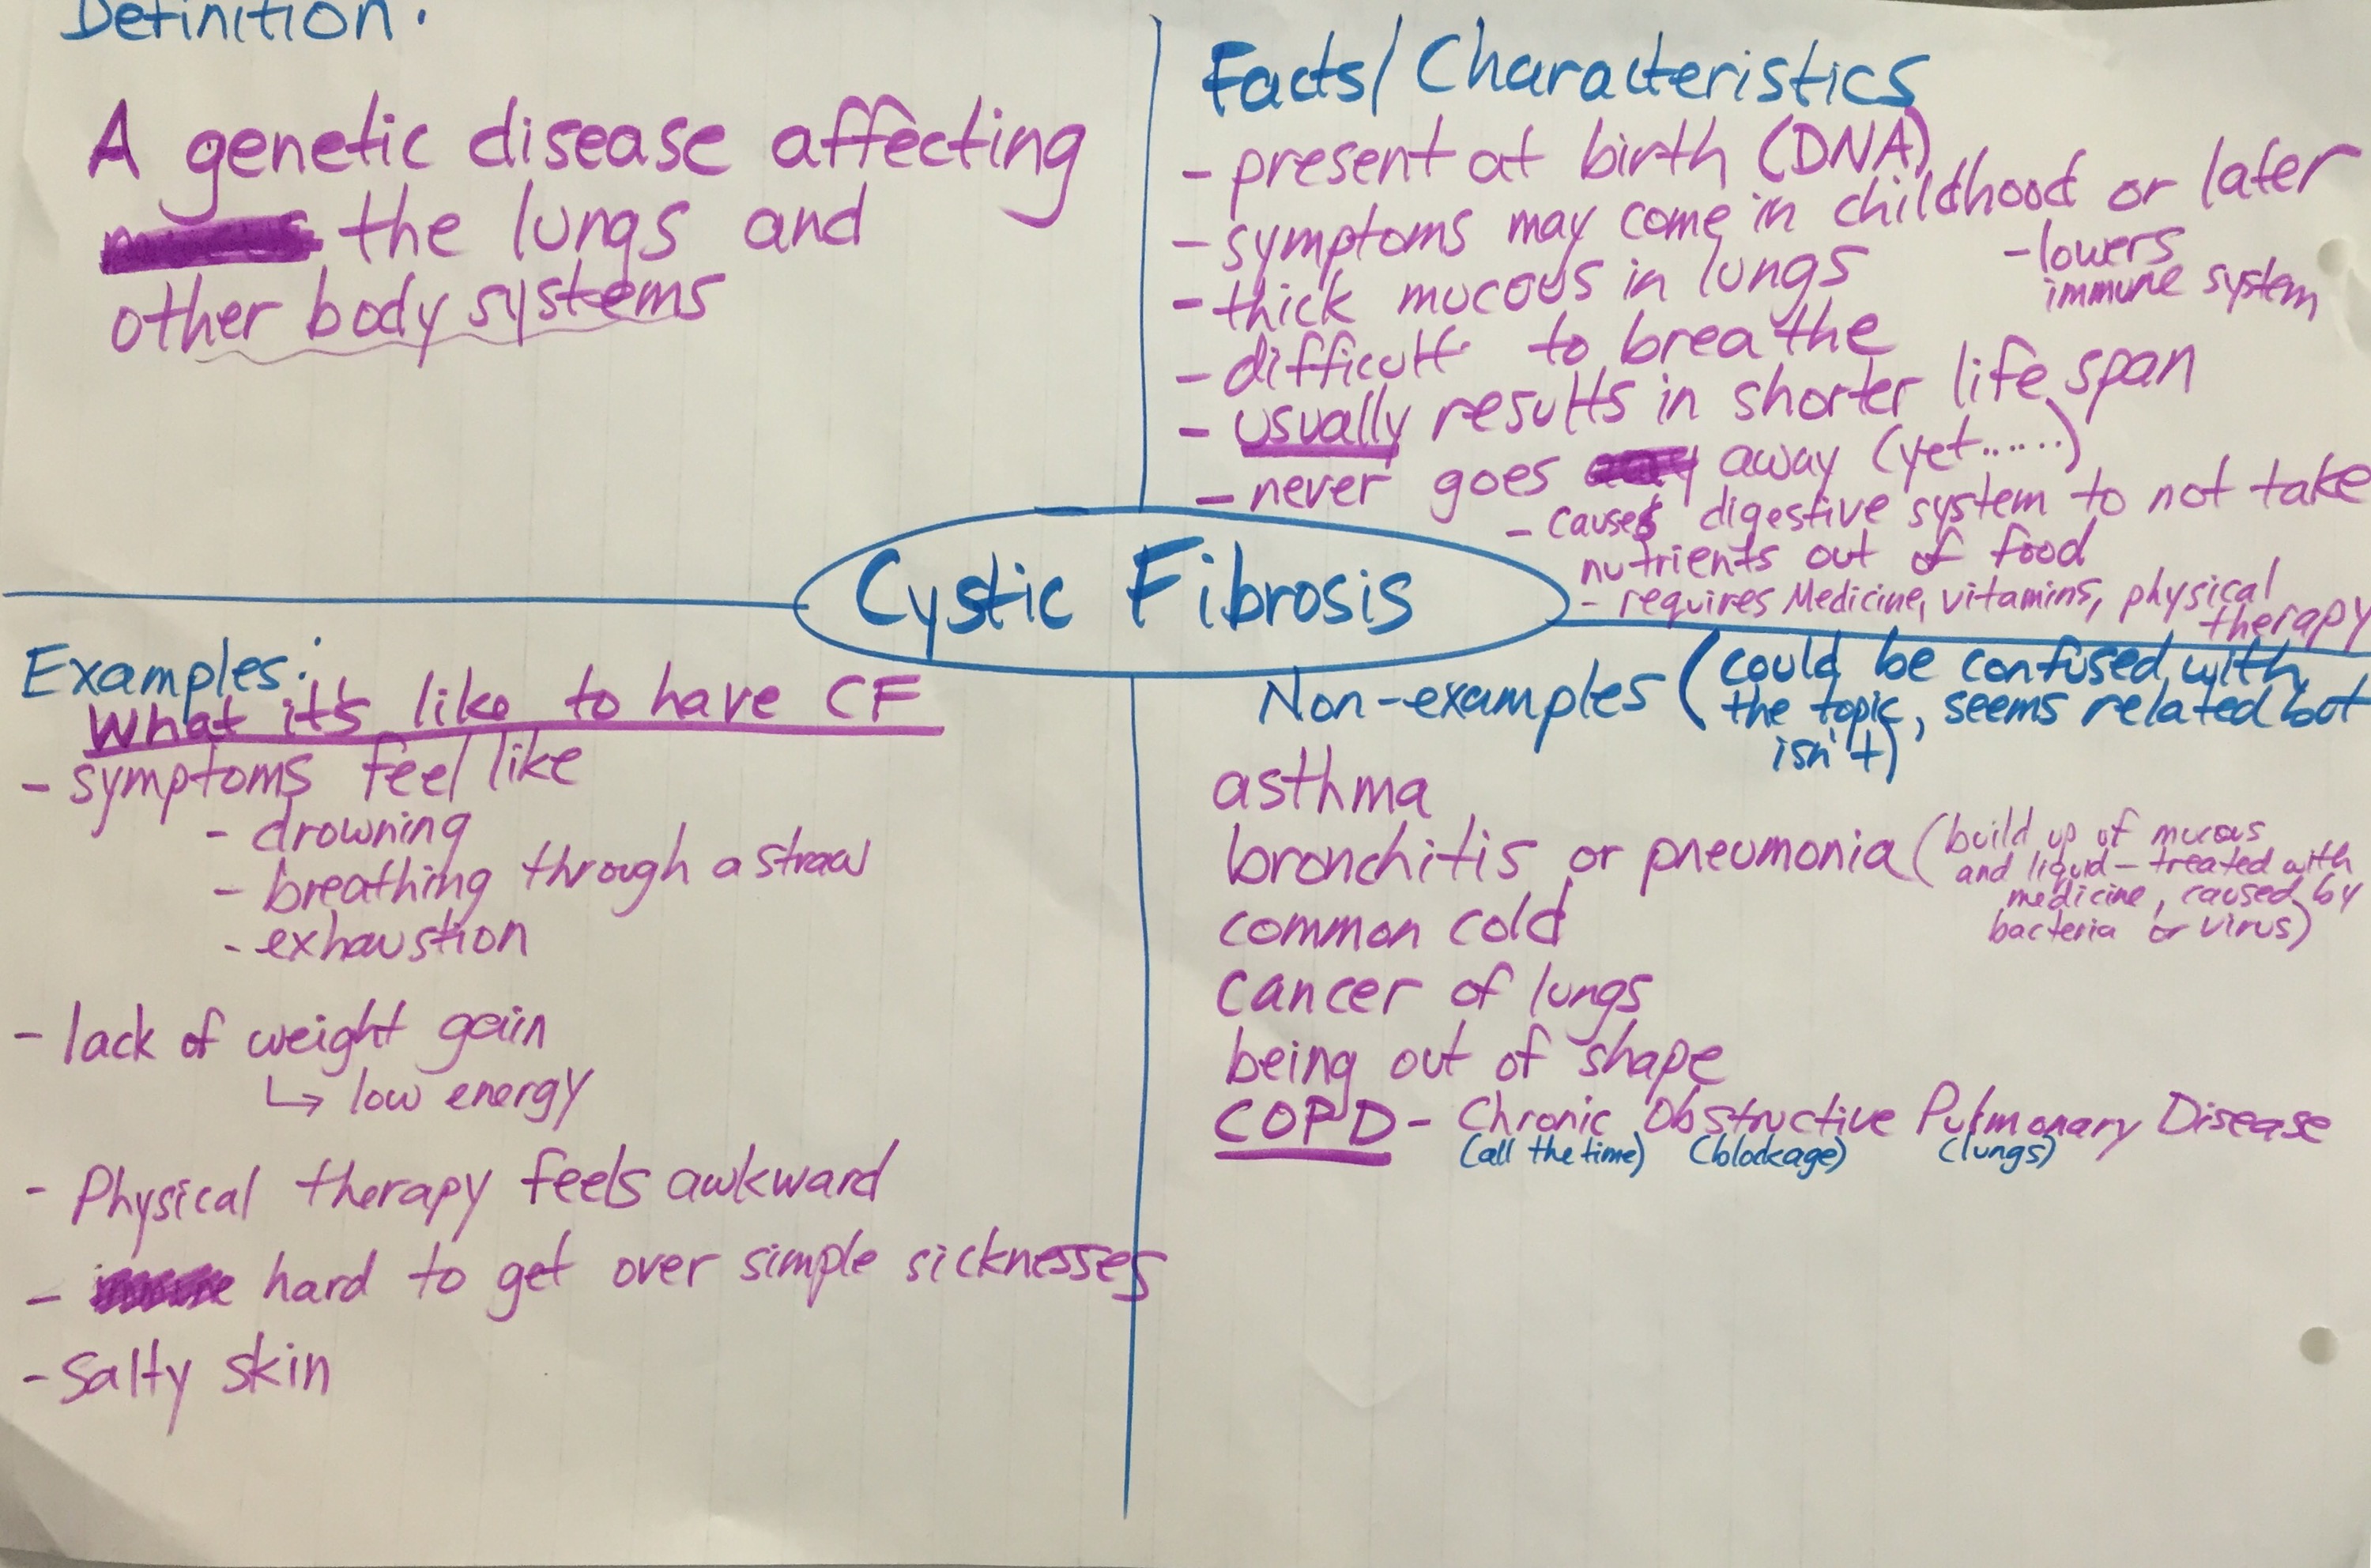 Definition:
A genetic disease affecting
the lungs and
other body systems
Facts/Characteristics
- present at birth (DNA)
- symptoms may come in childhood or later
- thick mucous in lungs
- lowers
immune system
- difficult to breathe
- usually results in shorter life span
- never goes away (yet......)
- causes digestive system to not take
nutrients out of food
- requires Medicine, vitamins, physical
therapy
Cystic Fibrosis
Examples:
What it's like to have CF
- symptoms feel like
- drowning
- breathing through a straw
- exhaustion
- lack of weight gain
↳ low energy
- Physical therapy feels awkward
- hard to get over simple sicknesses
- Salty skin
Non-examples (could be confused with
the topic, seems related but
isn't)
asthma
bronchitis or pneumonia (build up of mucous
and liquid - treated with
medicine, caused by
bacteria or virus)
common cold
cancer of lungs
being out of shape
COPD - Chronic Obstructive Pulmonary Disease
(all the time) (blockage) (lungs)